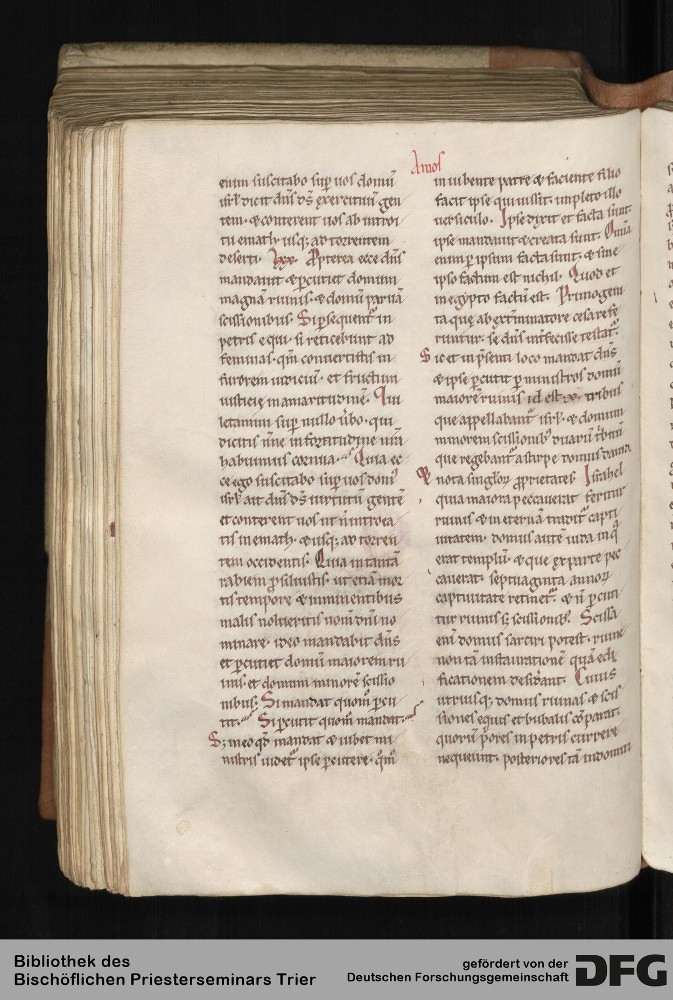 Amos
enim suscitabo sup̄ uos domū
isrl̄ dicit dn̄s ds̄ exercituū gen
tem · & conterent uos ab introi
tu emath · usq; ad torrentem
deserti · LXX · Ꝓpterea ecce dn̄s
mandauit · & ꝑcutiet domum
magnā ruinis · & domū paruā
scissionibus · Si ꝑsequent̄ in
petris equi · si reticebunt ad
feminas · qm̄ conuertistis in
furorem iudiciū · et fructum
iusticię in amaritudinē · Qui
letamini sup̄ nullo ũbo · qui
dicitis nn̄e in fortitudine nr̄a
habuimus cornua · Quia ec
ce ego suscitabo sup̄ uos dom'
isrl̄ ait dn̄s ds̄ uirtutū gentē
et conterent uos ut n̄ introea
tis in emath · & usq; ad torren
tem occidentis · Quia in tantā
rabiem ꝓsiluistis · ut etiā mor
tis tempore & imminentibus
malis nolueritis nom̄ dn̄i no
minare · ideo mandabit dn̄s
et ꝑcutiet domū maiorem ru
inis · et domum minorē scissio
nibus · Si mandat quom̄ ꝑcu
tit · Si ꝑcutit quom̄ mandat ·
S; in eo qd̄ mandat & iubet mi
nistris uidet̄ ipse ꝑcutere · qm̄
in iubente patre & faciente filio
facit ipse qui iussit · impleto illo
uersiculo · Ipse dixit et facta sunt ·
ipse mandauit & creata sunt · Om̄ia
enim ꝑ ipsum facta sunt · & sine
ipso factum est nichil · Quod et
in egypto factū est · Primogeni
ta que ab ext̄minatore cesa refe
runtur · se dn̄s int̄fecisse testat̄ ·
Sic et in p̄senti loco mandat dn̄s
& ipse ꝑcutit ꝑ ministros domū
maiorē ruinis id est · x · tribus
que appellabant̄ isrl̄ · & domum
minorem scissionib' duarū t'buū
que regebant̄ a stirpe domus dauid
& nota singl̄oꝝ ꝓprietates · Israhel
quia maiora peccauerat feritur
ruinis & in eternā tradit̄ capti
uitatem · domus autē iuda in q̄
erat templū · & que ex parte pec
cauerat · septuaginta annoꝝ
captiuitate retinet̄ · & n̄ ꝑcuti
tur ruinis s; scissionib' · Scissa
eni domus sarciri potest · ruine
non tā instaurationē quā edi
ficationem desid'ant · Cuius
utriusq; domus ruinas & scis
siones equis et bubalis cōparat ·
quorū p'ores in petris currere
nequeunt · posteriores tā indomiti
Bibliothek des
Bischöflichen Priesterseminars Trier
gefördert von der
Deutschen Forschungsgemeinschaft
DFG